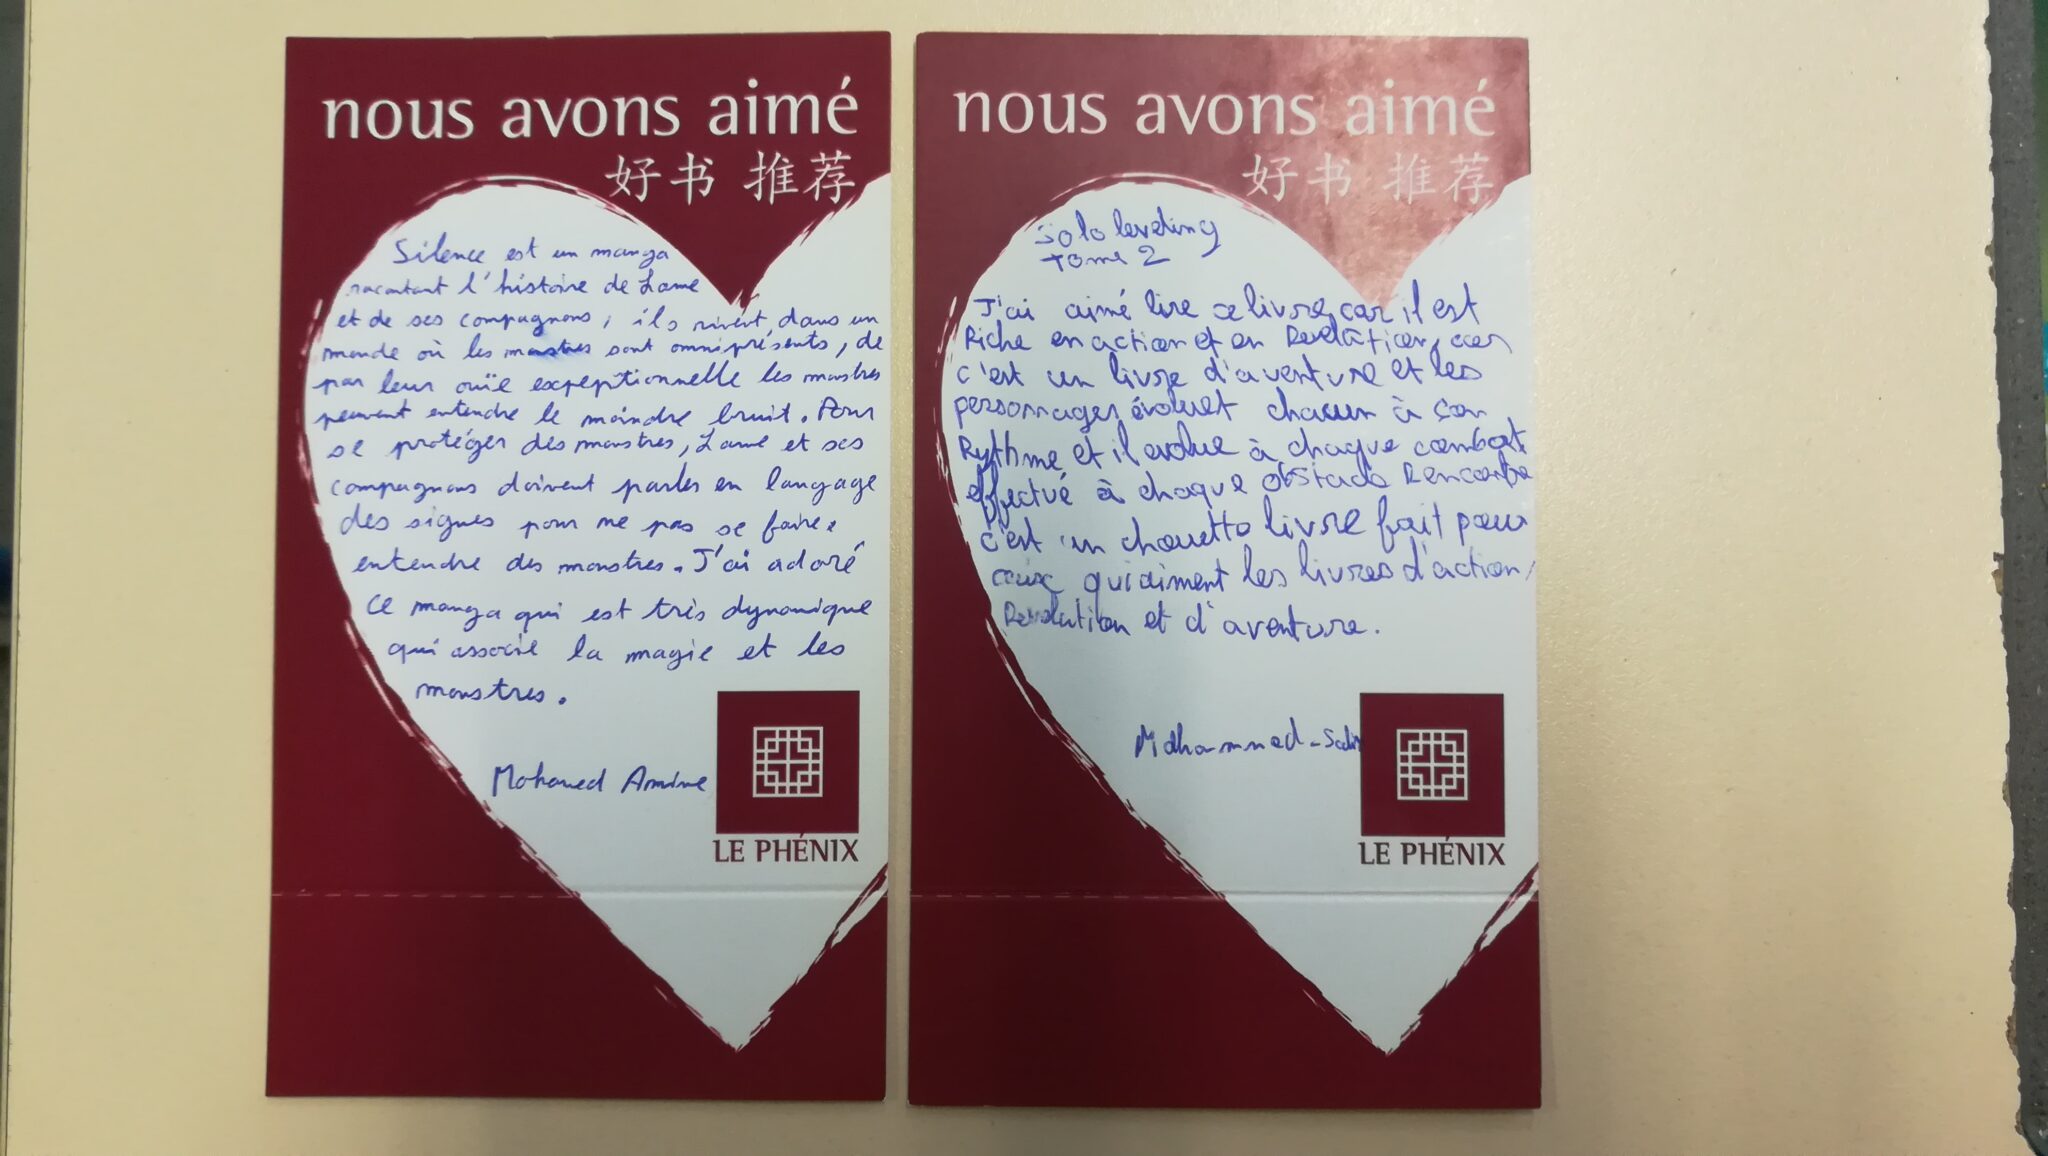 nous avons aimé
好书 推荐
Silence est un manga
racontant l'histoire de Lame
et de ses compagnons, ils vivent, dans un
monde où les monstres sont omniprésents, de
par leur ouïe expeptionnelle les monstres
peuvent entendre le moindre bruit. Pour
se protéger des monstres, Lame et ses
compagnons doivent parler en langage
des signes pour ne pas se faire
entendre des monstres. J'ai adoré
ce manga qui est très dynamique
qui associe la magie et les
monstres.
Mohamed Amine
LE PHÉNIX
nous avons aimé
好书 推荐
Solo leveling
Tome 2
J'ai aimé lire ce livre, car il est
Riche en action et en Revelation, car
c'est un livre d'aventure et les
personnages évoluet chacun à son
Rythme et il evolue à chaque combat
effectué à chaque obstacle Rencontre
c'est un chouette livre fait pour
ceux qui aiment les livres d'action,
Revelution et d'aventure.
Mohammed-
LE PHÉNIX